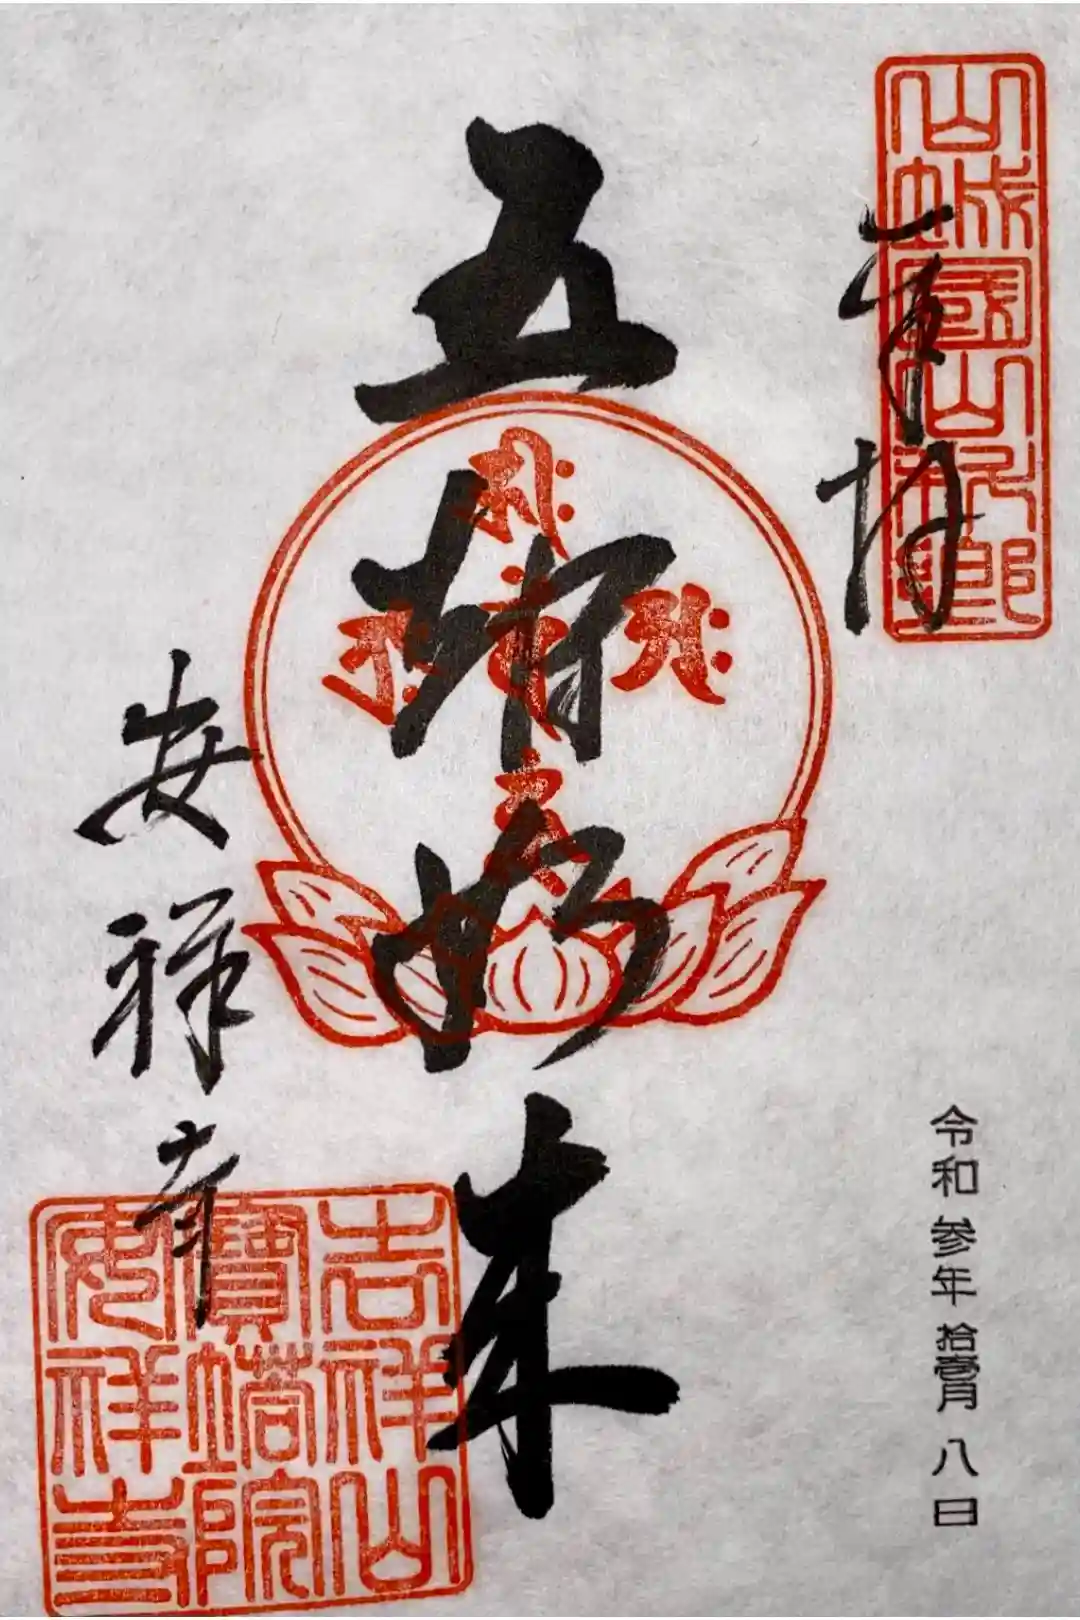 山城國山科郷
奉拝
令和参年拾壹月八日
五智如来
安祥寺
吉祥山
寶塔院
安祥寺